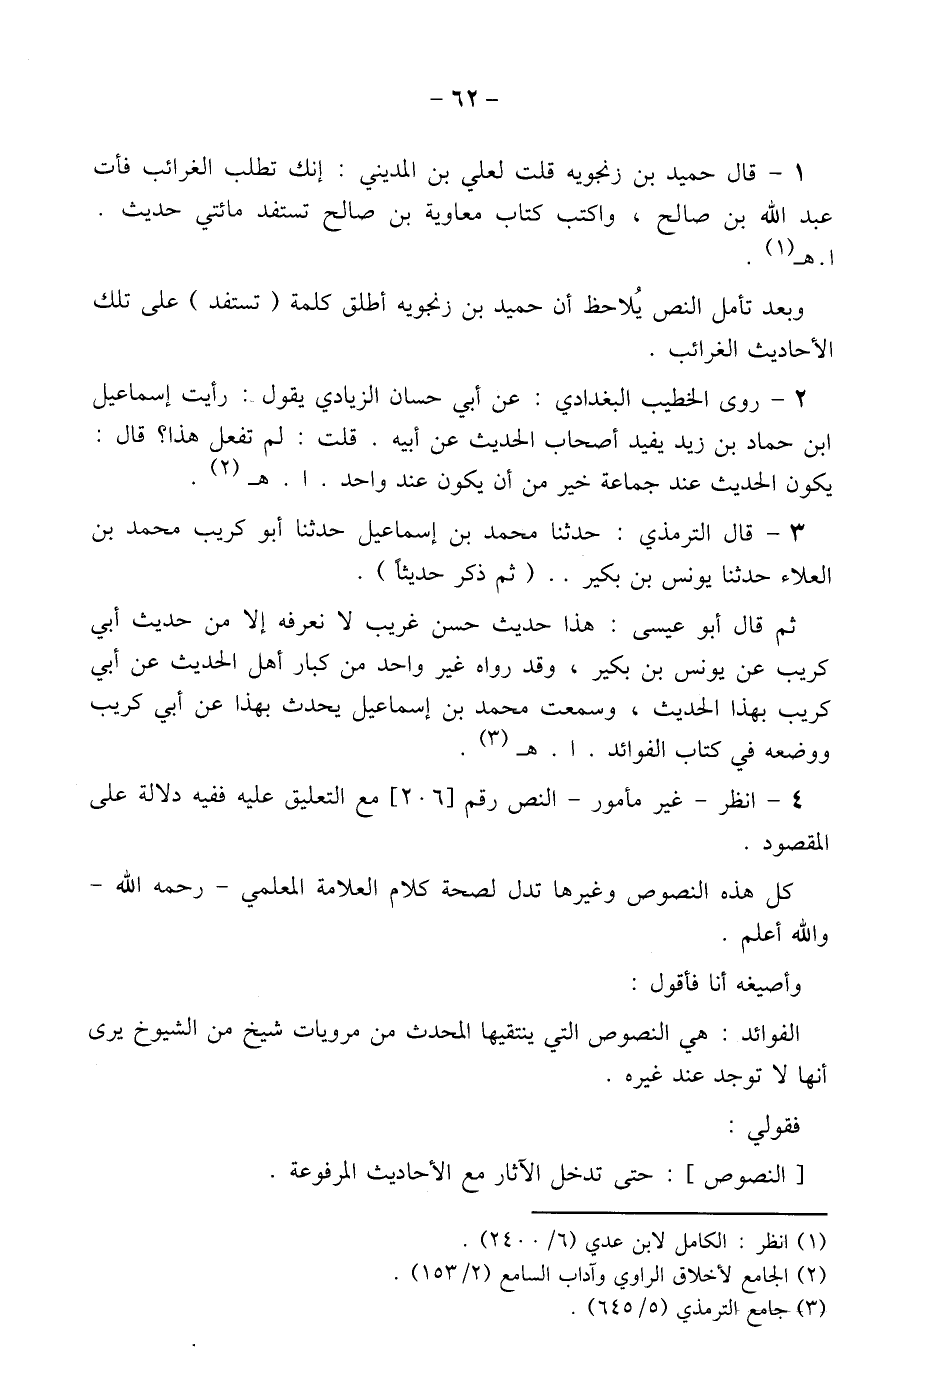 – ٦٢ –
١ – قال حميد بن زنجويه قلت لعلي بن المديني : إنك تطلب الغرائب فأت
عبد الله بن صالح ، واكتب كتاب معاوية بن صالح تستفد مائتي حديث .
ا.هـ(١) .
وبعد تأمل النص يُلاحظ أن حميد بن زنجويه أطلق كلمة ( تستفد ) على تلك
الأحاديث الغرائب .
٢ – روى الخطيب البغدادي : عن أبي حسان الزيادي يقول : رأيت إسماعيل
ابن حماد بن زيد يفيد أصحاب الحديث عن أبيه . قلت : لم تفعل هذا؟ قال :
يكون الحديث عند جماعة خير من أن يكون عند واحد . ا . هـ(٢) .
٣ – قال الترمذي : حدثنا محمد بن إسماعيل حدثنا أبو كريب محمد بن
العلاء حدثنا يونس بن بكير .. ( ثم ذكر حديثاً ) .
ثم قال أبو عيسى : هذا حديث حسن غريب لا نعرفه إلا من حديث أبي
كريب عن يونس بن بكير ، وقد رواه غير واحد من كبار أهل الحديث عن أبي
كريب بهذا الحديث ، وسمعت محمد بن إسماعيل يحدث بهذا عن أبي كريب
ووضعه في كتاب الفوائد . ا . هـ(٣) .
٤ – انظر – غير مأمور – النص رقم [٢٠٦] مع التعليق عليه ففيه دلالة على
المقصود .
كل هذه النصوص وغيرها تدل لصحة كلام العلامة المعلمي – رحمه الله –
والله أعلم .
وأصيغه أنا فأقول :
الفوائد : هي النصوص التي ينتقيها المحدث من مرويات شيخ من الشيوخ يرى
أنها لا توجد عند غيره .
فقولي :
[ النصوص ] : حتى تدخل الآثار مع الأحاديث المرفوعة .
(١) انظر : الكامل لابن عدي (٦/ ٢٤٠٠) .
(٢) الجامع لأخلاق الراوي وآداب السامع (٢/ ١٥٣) .
(٣) جامع الترمذي (٥/ ٦٤٥) .